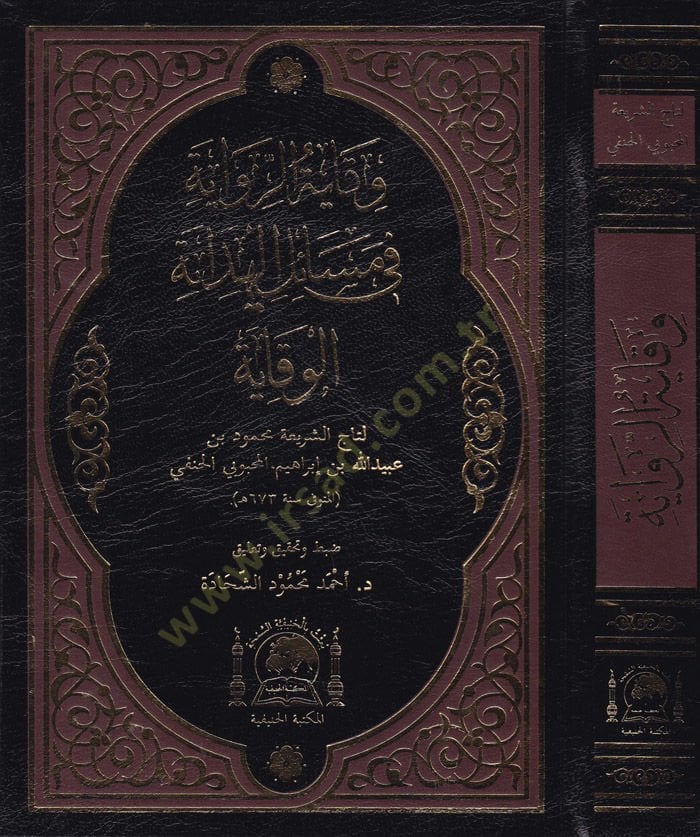 وِقَايَةُ الرِّوَايَةِ
فِي مَسَائِلِ الْهِدَايَةِ
الوِقَايَة
لتاج الشريعة محمود بن
عبيدالله بن إبراهيم المحبوبي الحنفي
(المتوفى سنة ٦٧٣هـ)
ضبط وتحقيق وتعليق
د. أَحْمَد مَحْمُوْد الشَّحَادَة
المكتبة الحنيفية
المكتبة الحنيفية
لتاج الشريعة
المحبوبي الحنفي
وِقَايَةُ الرِّوَايَةِ
المكتبة الحنيفية
www.irsad.com.tr